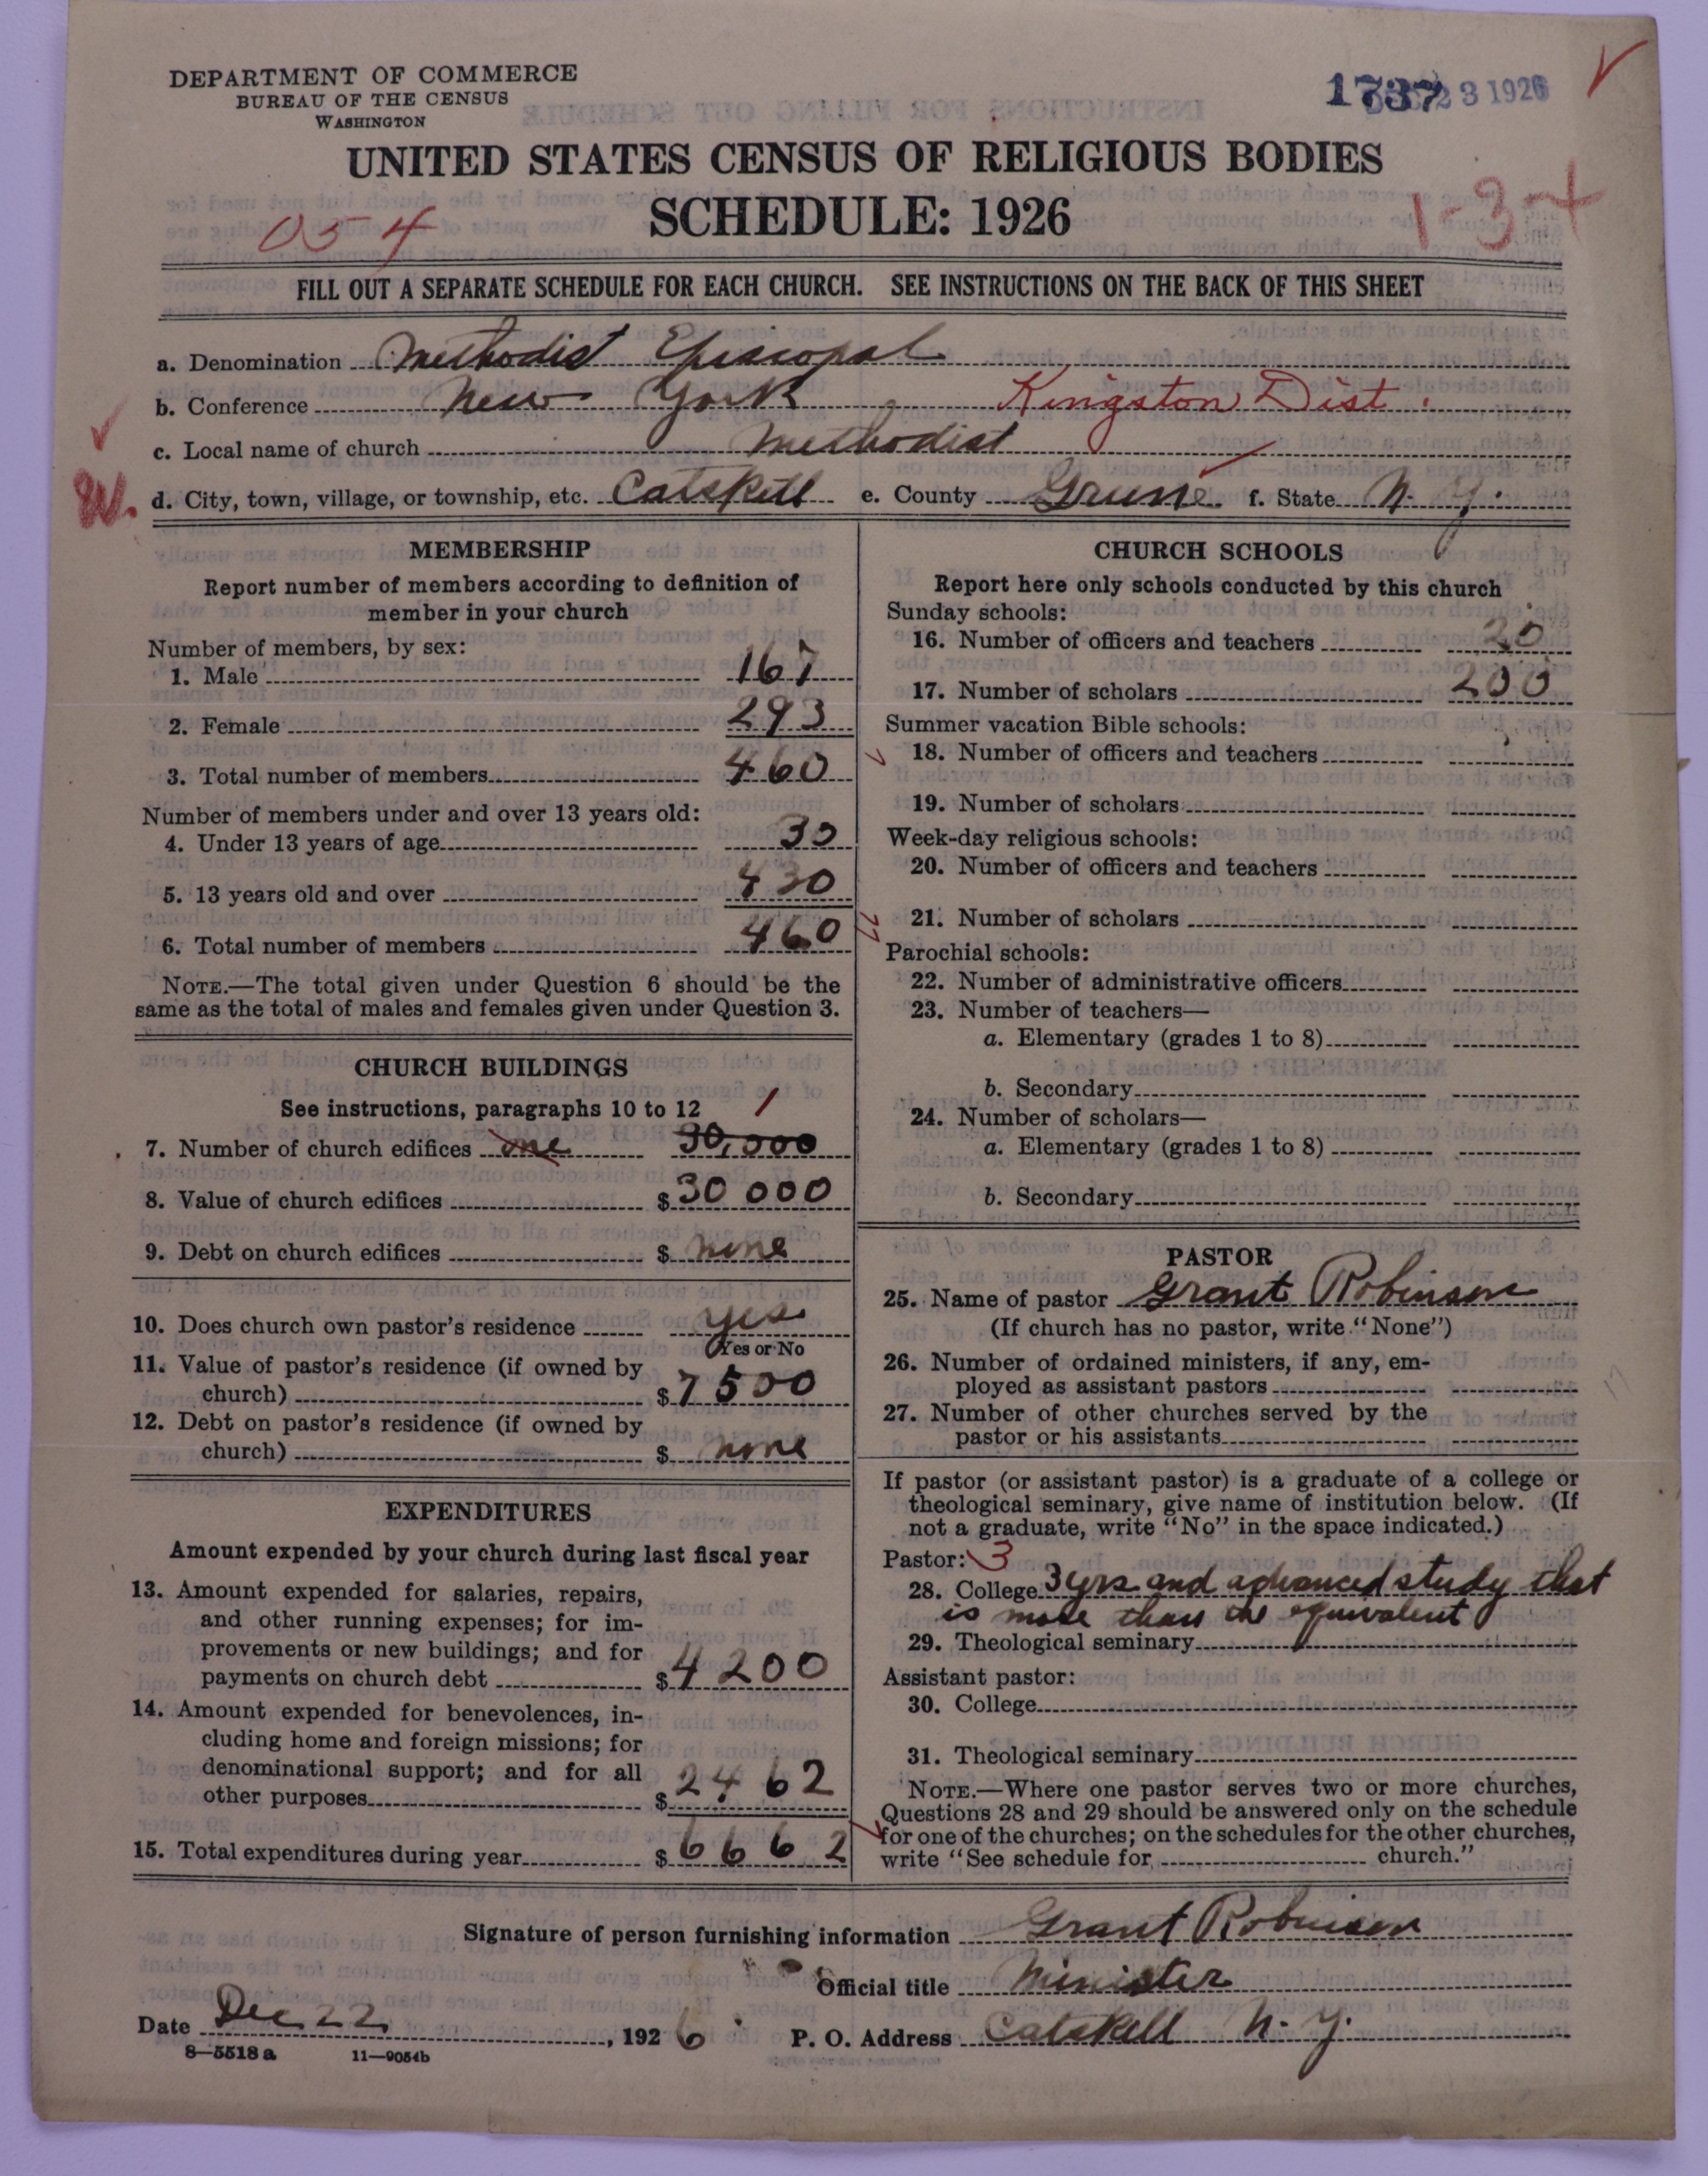 DEPARTMENT OF COMMERCE
BUREAU OF THE CENSUS
WASHINGTON
1737 23 1926
UNITED STATES CENSUS OF RELIGIOUS BODIES
SCHEDULE: 1926
054
1-3-4
FILL OUT A SEPARATE SCHEDULE FOR EACH CHURCH. SEE INSTRUCTIONS ON THE BACK OF THIS SHEET
a. Denomination Methodist Episcopal
b. Conference New York Kingston Dist.
c. Local name of church Methodist
W. d. City, town, village, or township, etc. Catskill e. County Greene f. State N. Y.
MEMBERSHIP
Report number of members according to definition of
member in your church
Number of members, by sex:
1. Male 167
2. Female 293
3. Total number of members 460
Number of members under and over 13 years old:
4. Under 13 years of age 30
5. 13 years old and over 430
6. Total number of members 460
NOTE.—The total given under Question 6 should be the
same as the total of males and females given under Question 3.
CHURCH BUILDINGS
See instructions, paragraphs 10 to 12 1
7. Number of church edifices one 30,000
8. Value of church edifices $30 000
9. Debt on church edifices $ none
10. Does church own pastor's residence yes
Yes or No
11. Value of pastor's residence (if owned by
church) $7500
12. Debt on pastor's residence (if owned by
church) $ none
EXPENDITURES
Amount expended by your church during last fiscal year
13. Amount expended for salaries, repairs,
and other running expenses; for im-
provements or new buildings; and for
payments on church debt $4200
14. Amount expended for benevolences, in-
cluding home and foreign missions; for
denominational support; and for all
other purposes $2462
15. Total expenditures during year $6662
CHURCH SCHOOLS
Report here only schools conducted by this church
Sunday schools:
16. Number of officers and teachers 20
17. Number of scholars 200
Summer vacation Bible schools:
18. Number of officers and teachers
19. Number of scholars
Week-day religious schools:
20. Number of officers and teachers
21. Number of scholars
Parochial schools:
22. Number of administrative officers
23. Number of teachers—
a. Elementary (grades 1 to 8)
b. Secondary
24. Number of scholars—
a. Elementary (grades 1 to 8)
b. Secondary
PASTOR
25. Name of pastor Grant Robinson
(If church has no pastor, write "None")
26. Number of ordained ministers, if any, em-
ployed as assistant pastors
27. Number of other churches served by the
pastor or his assistants
If pastor (or assistant pastor) is a graduate of a college or
theological seminary, give name of institution below. (If
not a graduate, write "No" in the space indicated.)
Pastor: 3
28. College 3 yrs and advanced study that
is more than the equivalent
29. Theological seminary
Assistant pastor:
30. College
31. Theological seminary
NOTE.—Where one pastor serves two or more churches,
Questions 28 and 29 should be answered only on the schedule
for one of the churches; on the schedules for the other churches,
write "See schedule for church."
Signature of person furnishing information Grant Robinson
Official title Minister
Date Dec 22, 1926 P. O. Address Catskill N. Y.
8—5518 a 11—9054b